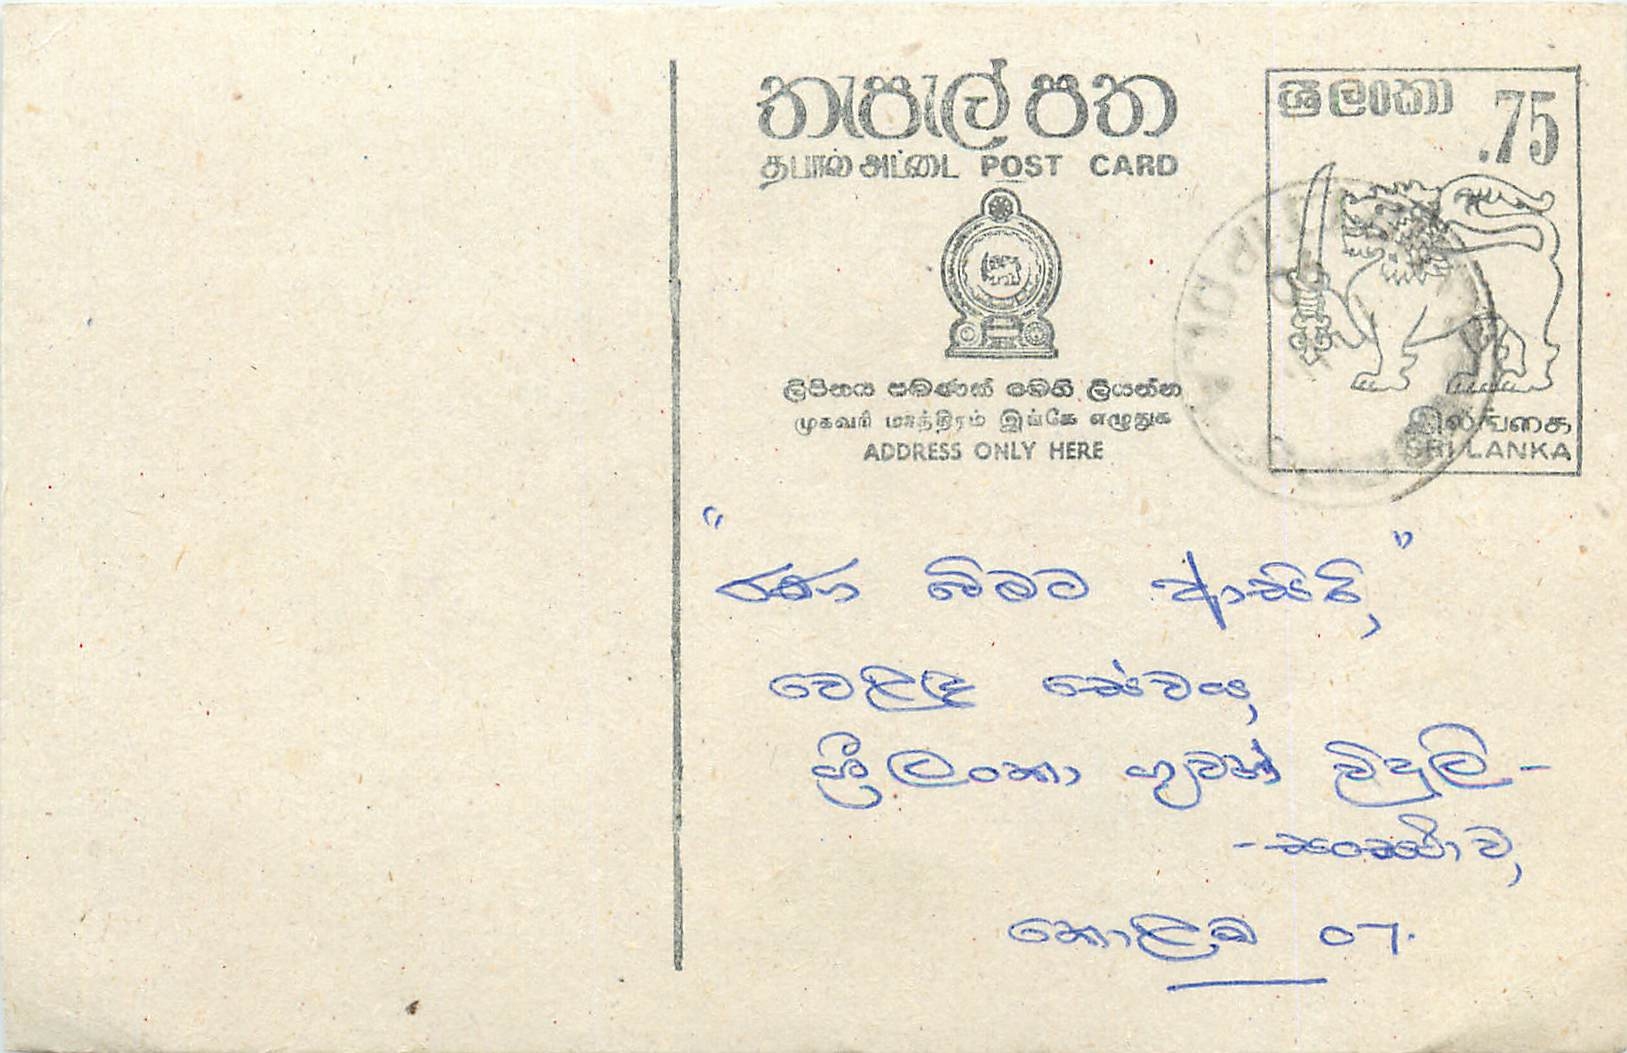 තැපැල් පත
தபால் அட்டை POST CARD
ශ්‍රී ලංකා .75
ලිපිනය පමණක් මෙහි ලියන්න
முகவரி மாத்திரம் இங்கே எழுதுக
ADDRESS ONLY HERE
இலங்கை
SRI LANKA
"රණ බිමට ආසිරි,"
වෙළඳ සේවය,
ශ්‍රී ලංකා ගුවන් විදුලි -
- සංස්ථාව,
කොළඹ 07.